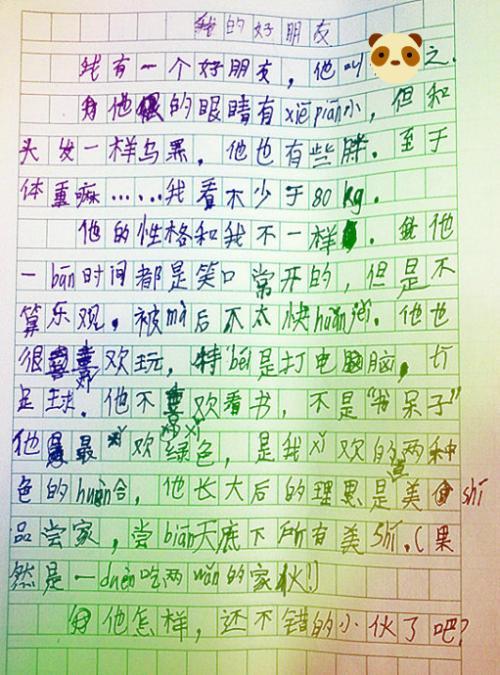 我的好朋友
我有一个好朋友，他叫之.
他的眼睛有xiē piān小，但和
头发一样乌黑，他也有些胖。至于
体重嘛……我看不少于80kg.
他的性格和我不一样。他
一bān时间都是笑口常开的，但是不
算乐观，被mà后不太快huān jěi。他也
很喜欢玩，特bēi是打电脑，
足球．他不喜欢看书，不是“书呆子”
他最xǐ欢绿色，是我xǐ欢的两种
色的hùn合，他长大后的理想是美shí
品尝家，尝biàn天底下所有美shí.(果
然是一dùn吃两wǎn的家伙!)
他怎样，还不错的小伙了吧?